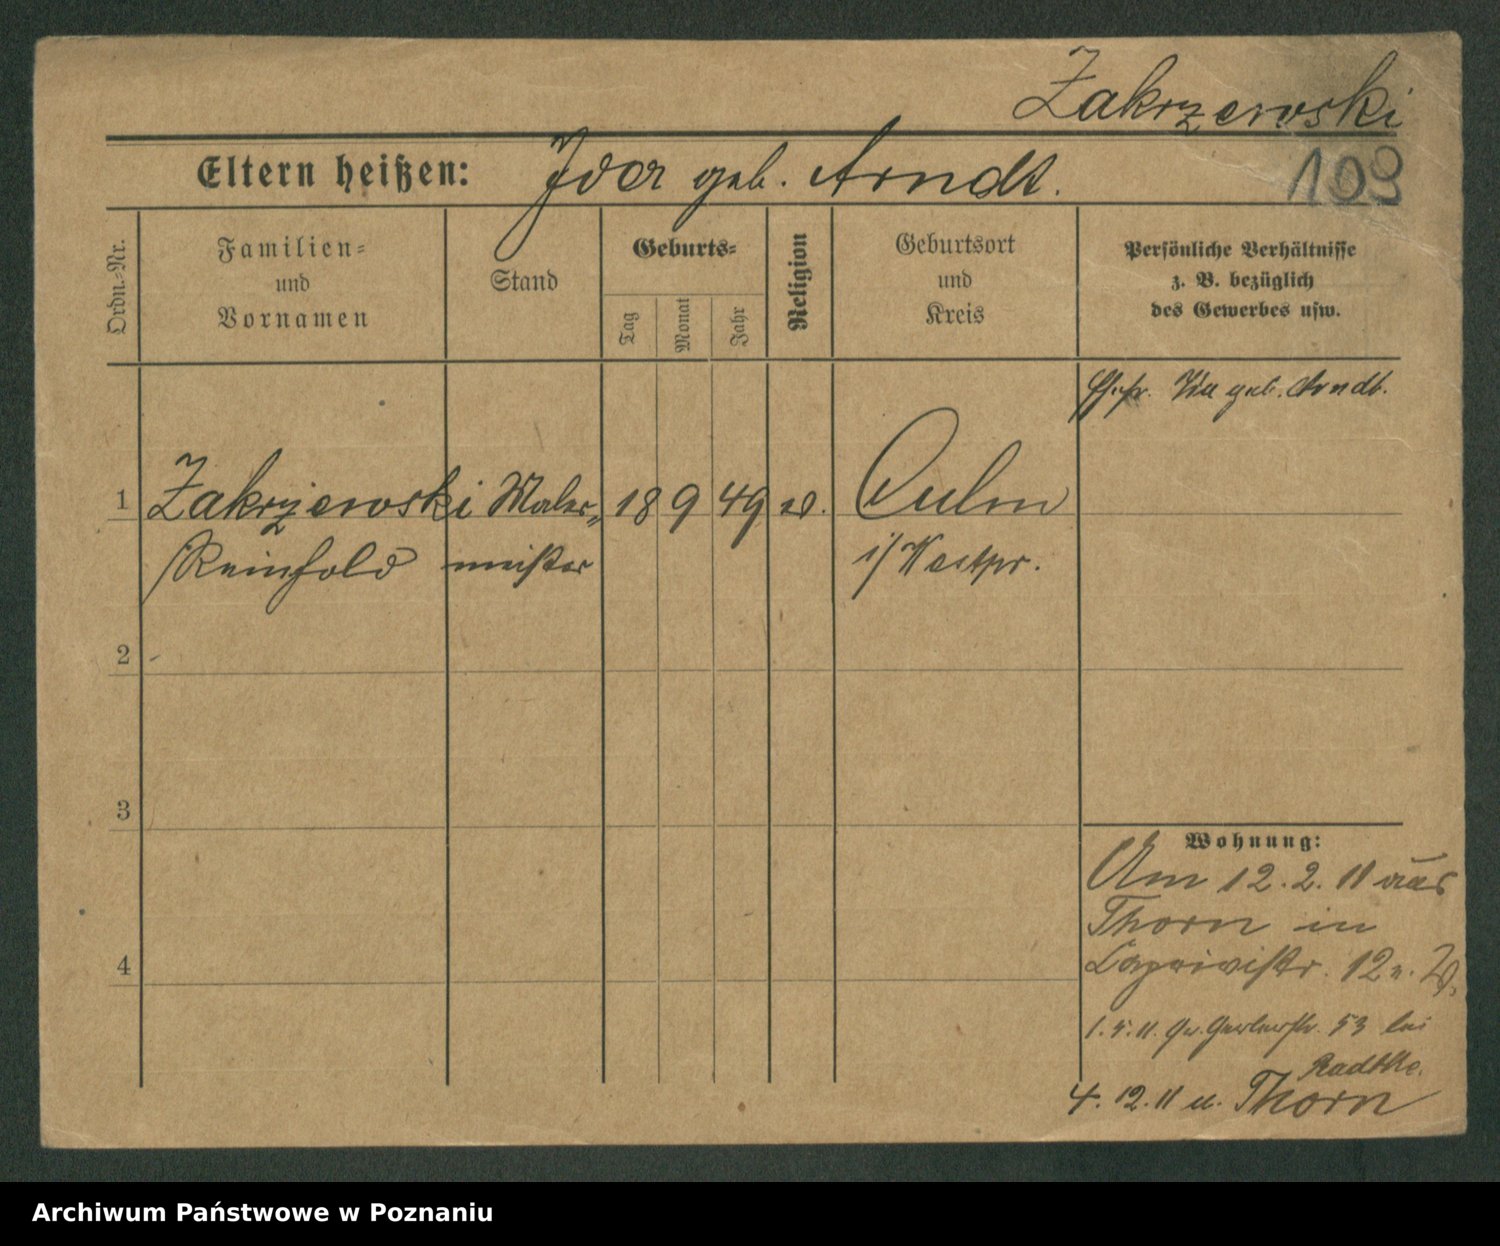 Zakrzewski
109
Eltern heißen: Ida geb. Arndt.
Ordn.-Nr.
Familien-
und
Vornamen
Stand
Geburts-
Tag
Monat
Jahr
Religion
Geburtsort
und
Kreis
Persönliche Verhältnisse
z. B. bezüglich
des Gewerbes usw.
Ehefr. Ida geb. Arndt.
1 Zakrzewski Maler- 18 9 49 Culm
Reinhold meister i/Westpr.
2
3
4
Wohnung:
Am 12. 2. 11 aus
Thorn in
Caprivistr. 12
1. 5. 11. Gr. Gerberstr. 53 bei
Radtke.
4. 12. 11 n. Thorn
Archiwum Państwowe w Poznaniu